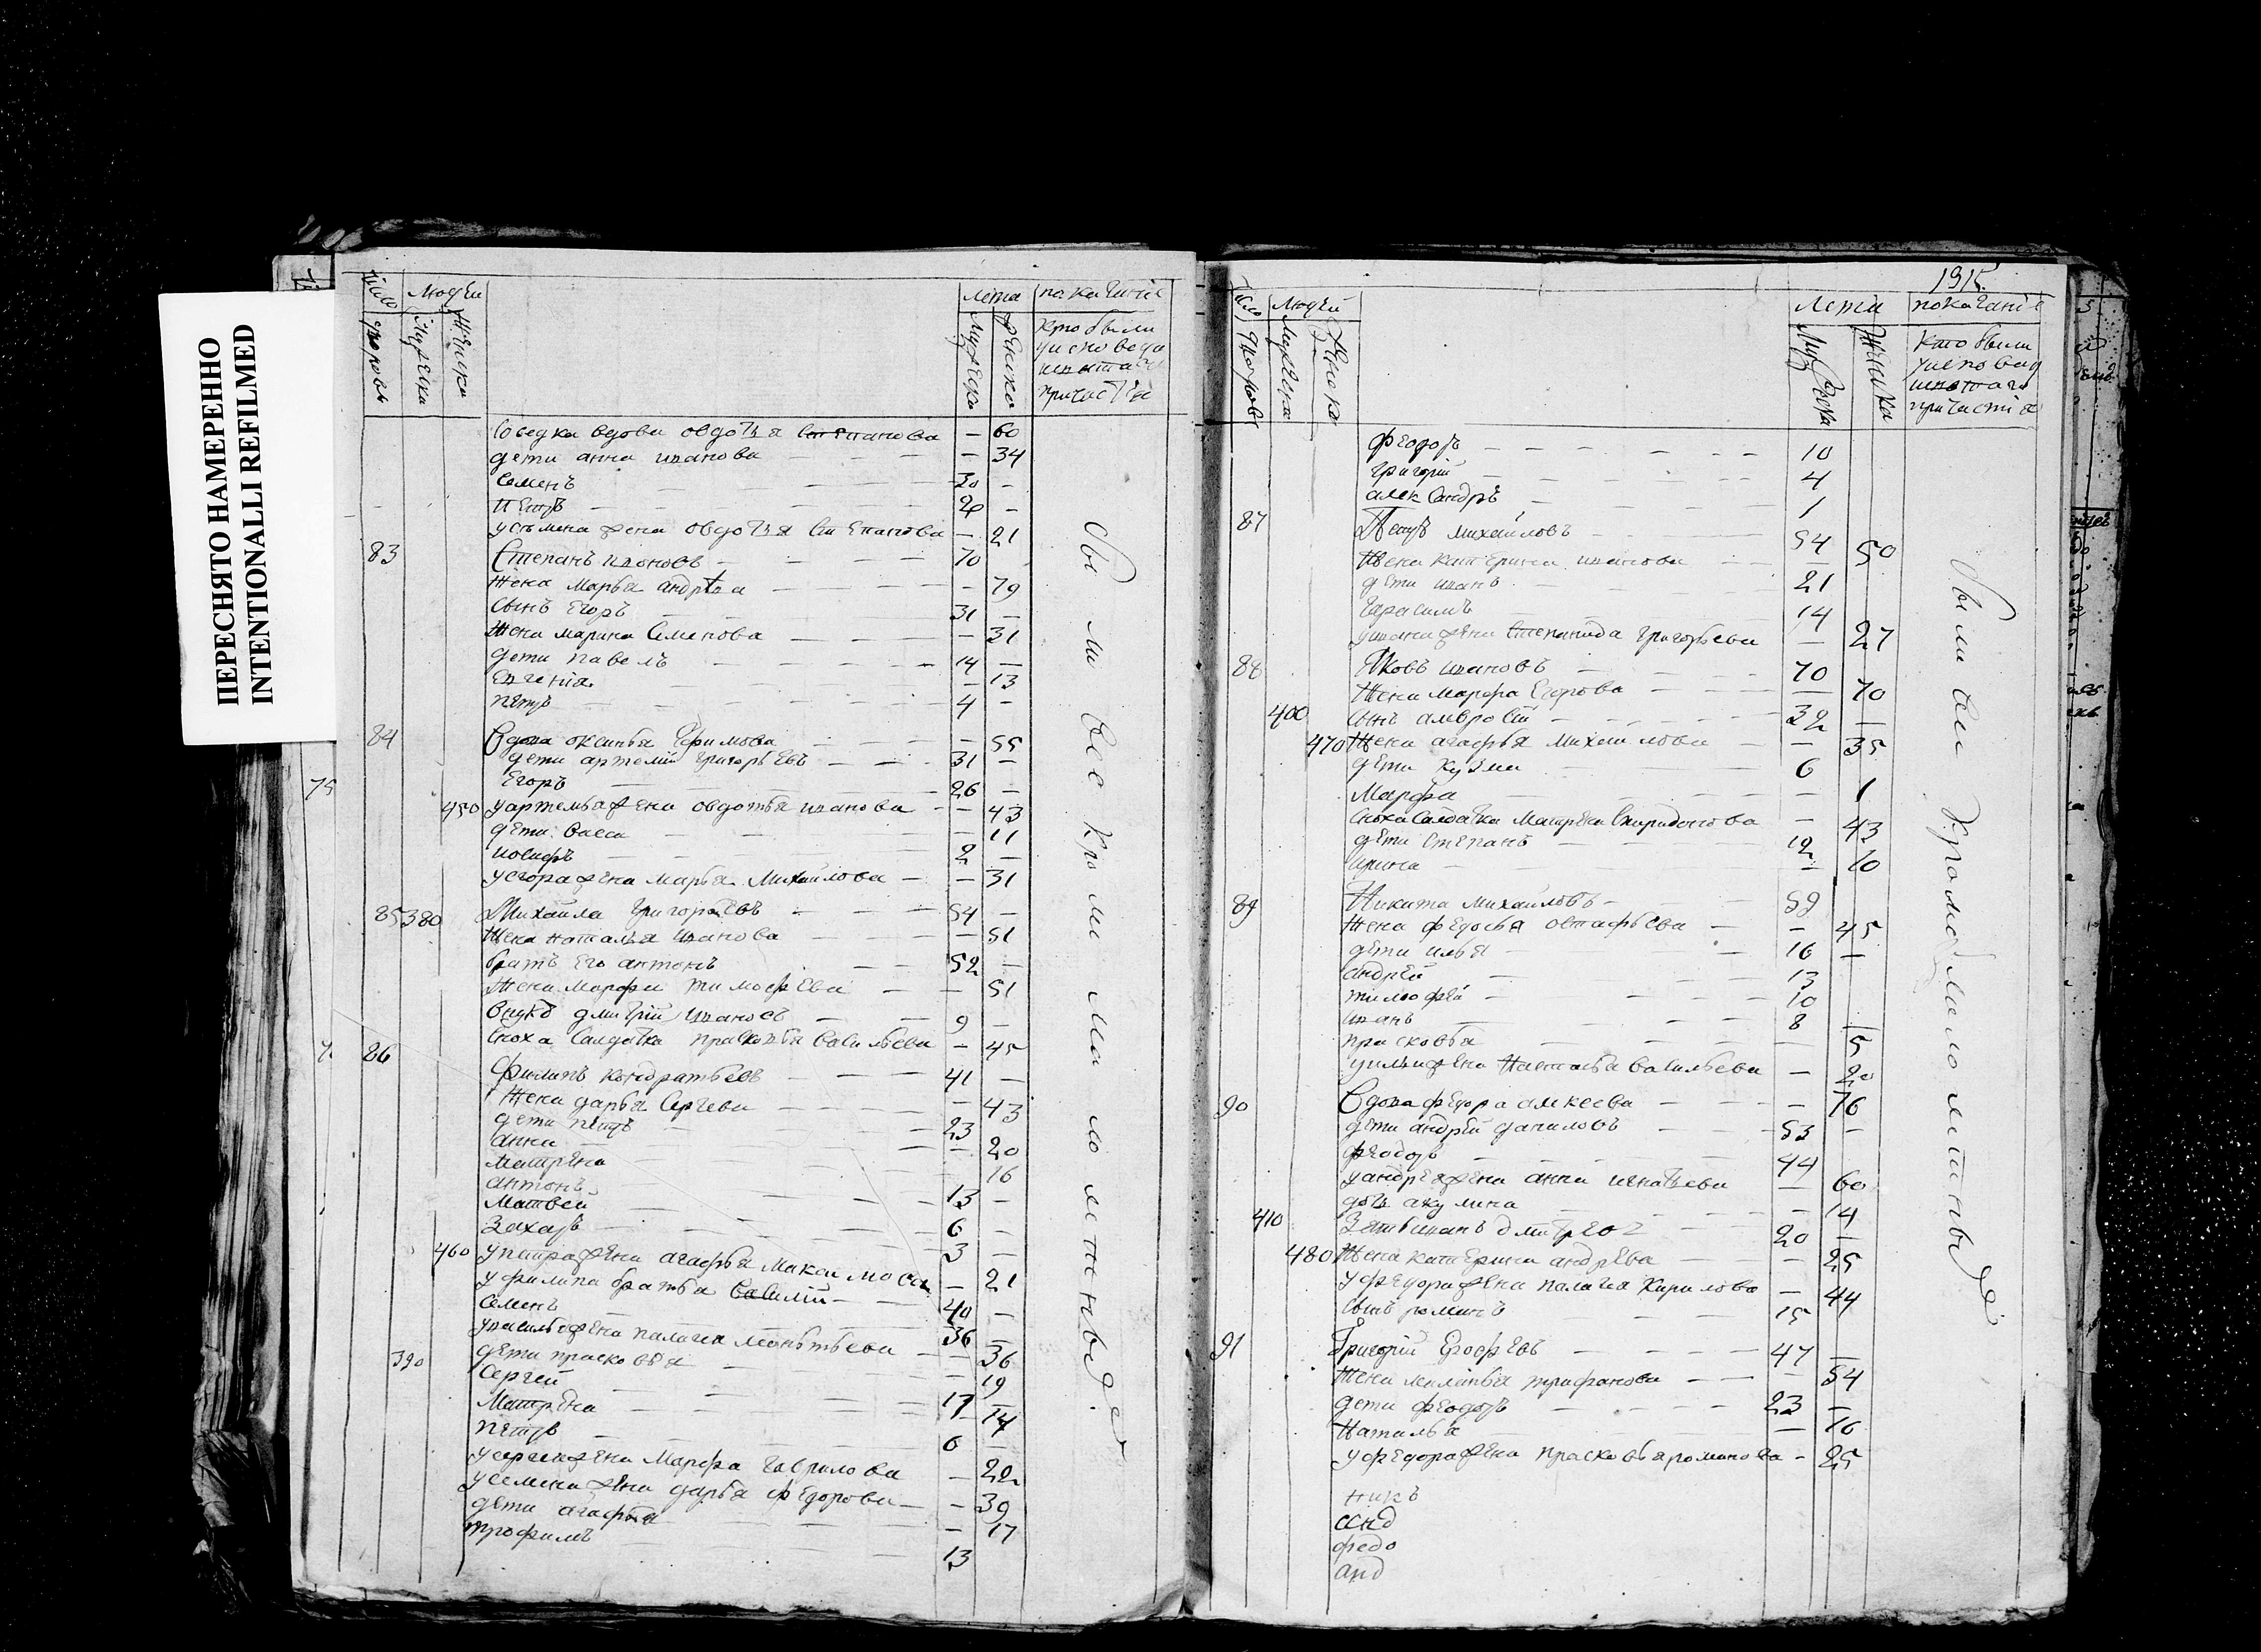 ПЕРЕСНЯТО НАМЕРЕННО
INTENTIONALLI REFILMED
Число дворовъ
Людей
Мужеска
Женска
лета
Мужеска
Женска
показаніе
кто были
у исповеди
и святаго
причастія
соседка вдова овдотья Степанова — 60
дети анна иванова — 34
Семенъ 30 —
Петръ 20 —
у семена жена овдотья Степанова — 21
83 Степанъ ивановъ 70
Жена Марья андрева — 79
сынъ Егоръ 31 —
Жена марина Семенова — 31
дети павелъ 14 —
Евгенія — 13
петръ 4 —
84 Вдова оксинья Ефимова — 55
дети артемій григорьевъ 31 —
Егоръ 26 —
450 у артемья жена овдотья иванова — 43
дети васса — 11
иосифъ 2 —
у егора жена марья Михаилова — 31
85 380 Михайла григорьевъ 54 —
Жена наталья иванова — 51
братъ его антонъ 52 —
Жена марфа тимофеева — 51
внукъ дмитрій ивановъ 9 —
сноха салдатка прасковья васильева — 45
86 Филипъ кондратьевъ 41 —
Жена дарья Сергева — 43
дети петръ 23
анна — 20
матрена 16
антонъ 13 —
матвей 6 —
Захаръ 3 —
460 у петра жена агафья Максимова — 21
у филипа братья василій 40 —
Семенъ 36 —
у василья жена палагея
390 дети прасковья 19
Сергей 17 —
Матрена 14
петръ 6 —
у сергея жена Марфа гаврилова — 22
у семена жена дарья федорова — 39
дети агафья — 17
трофимъ 13
были все кроми малометныхъ
1915
Число дворовъ
Людей
Мужеска
Женска
лета
Мужеска
Женска
показаніе
кто были
у исповеди
и святаго
причастія
феодоръ 10
григорій 4
александръ 1
87 Петръ михайловъ 54
Жена катерина иванова — 50
дети иванъ 21
герасимъ 14
у ивана жена степанида григорьева — 27
88 Яковъ ивановъ 70
Жена марфа Егорова — 70
400 сынъ амвросій 32 —
470 Жена агафья михаилова — 35
дети кузма 6
Марфа — 1
сноха салдатка матрена спиридонова — 43
дети степанъ 12
ирина — 10
89 Никита михаиловъ 59
Жена федосья остафьева — 45
дети илья 16 —
андрей 13
тимофей 10
иванъ 8 —
прасковья 5
у ильи жена Наталья васильева — 20
90 Вдова федора алексева — 76
дети андрей даниловъ 53 —
феодоръ 44
у андрея жена анна игнатьева — 60
дочь акулина — 14
410 Зять иванъ 20 —
480 Жена катерина андрева — 25
у федора жена палагея Кирилова — 44
сынъ романъ 15
91 Григорій Ерофеевъ 47 —
Жена трифанова — 54
дети феодоръ 23 —
Наталья — 16
у федора жена прасковья романова — 25
андъ
федо
анд
были все